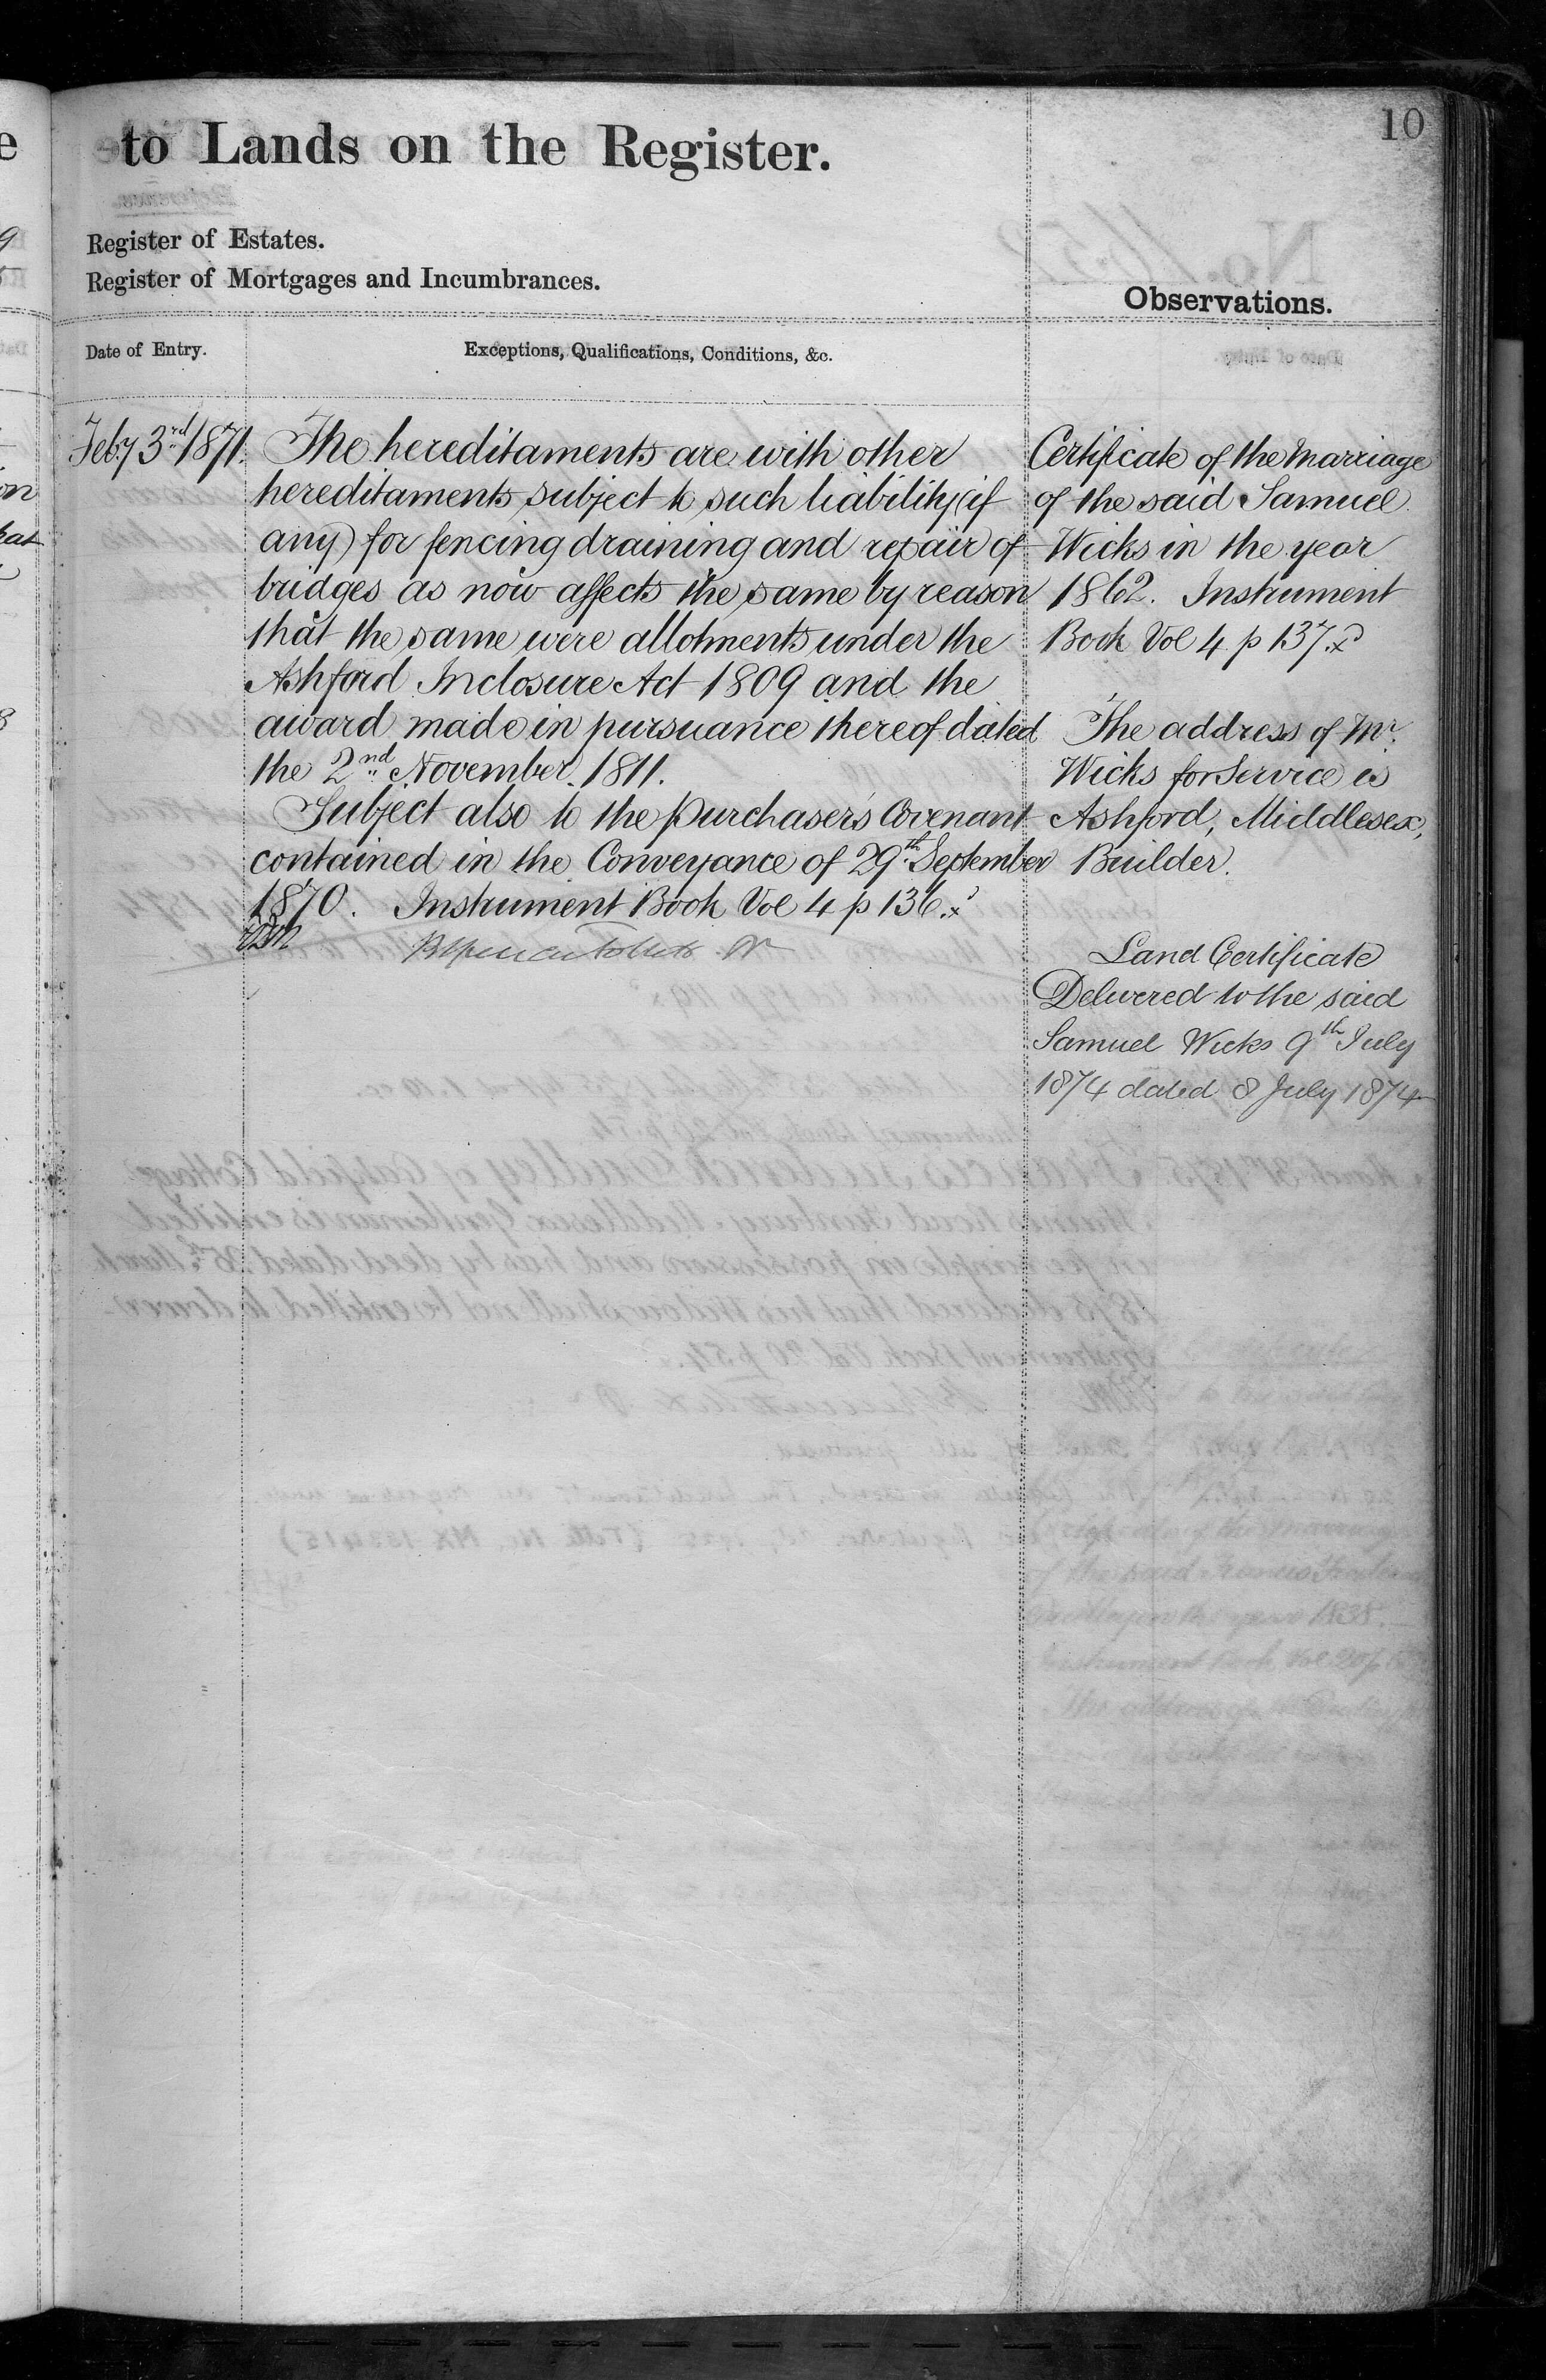 10
to Lands on the Register.
Register of Estates.
Register of Mortgages and Incumbrances.
Observations.
Date of Entry.
Exceptions, Qualifications, Conditions, &c.
Feby 3rd 1871.
The hereditaments are with other
hereditaments subject to such liability (if
any) for fencing draining and repair of
bridges as now affects the same by reason
that the same were allotments under the
Ashford Inclosure Act 1809 and the
award made in pursuance thereof dated
the 2nd November 1811.
Subject also to the purchaser's Covenant
contained in the Conveyance of 29th September
1870. Instrument Book Vol 4 p 136.
Certificate of the Marriage
of the said Samuel
Wicks in the year
1862. Instrument
Book Vol 4 p 137.
The address of Mr.
Wicks for Service is
Ashford, Middlesex,
Builder.
Land Certificate
Delivered to the said
Samuel Wicks 9th July
1874 dated 8 July 1874